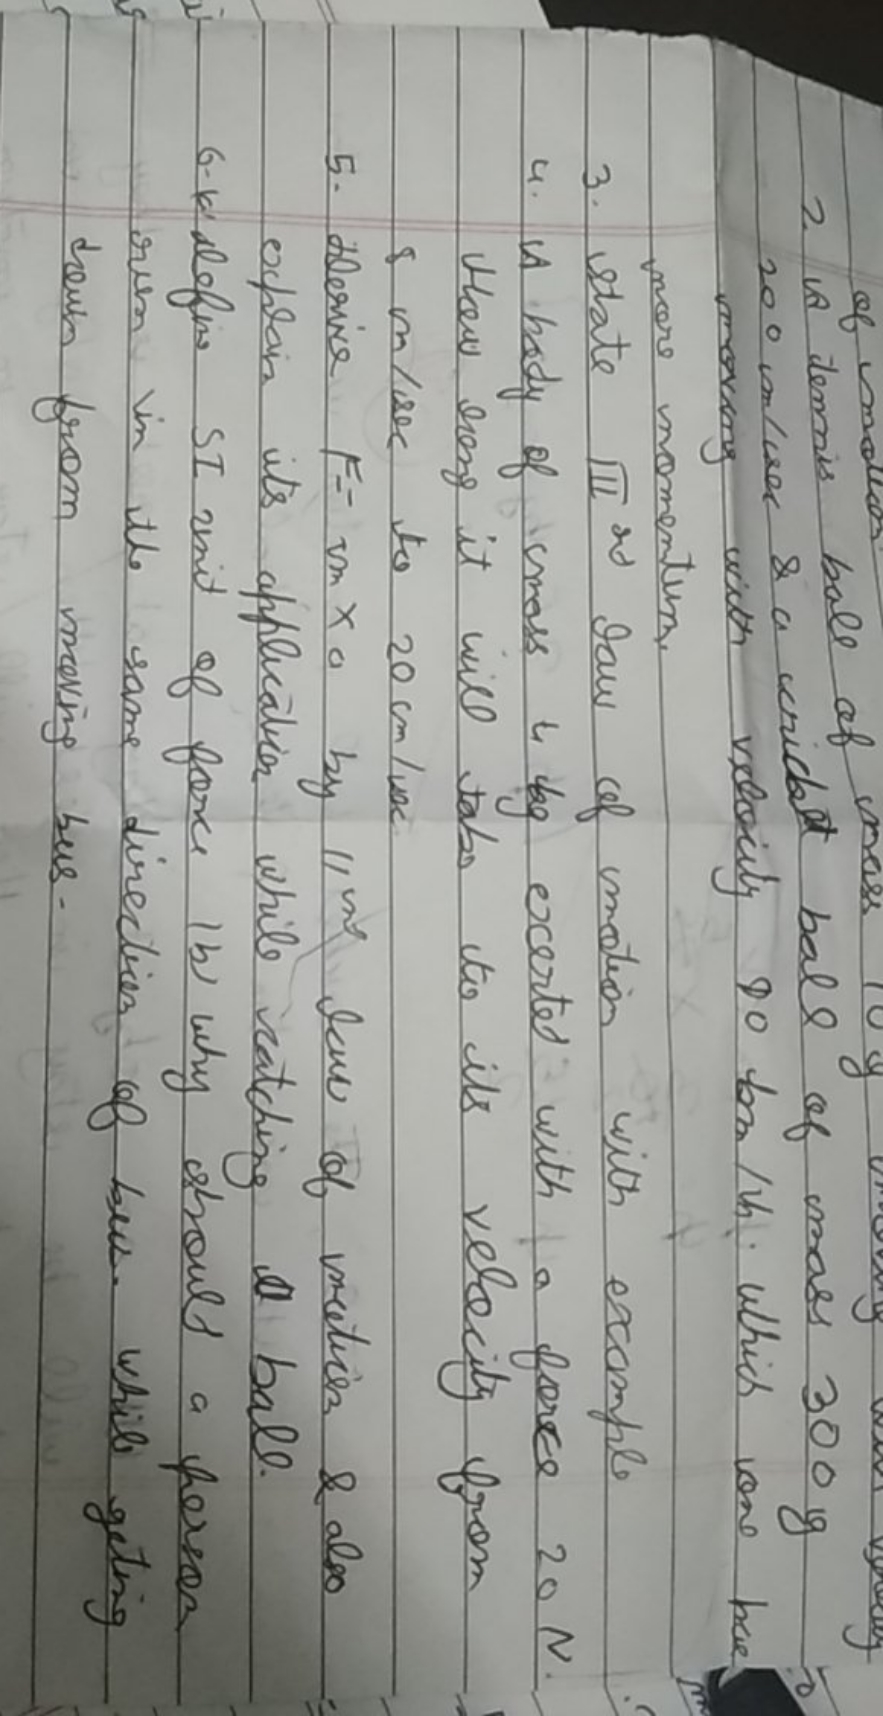 of motion
2. A tennis ball of mass 10 g moving with velocity
200 m/sec & a cricket ball of mass 300 g
moving with velocity 90 km/h. which one has
more momentum.
3. state III rd law of motion with example
4. A body of mass 4 kg exerted with a force 20 N.
How long it will take to its velocity from
8 m/sec to 20 m/sec
5. Derive F = m x a by II nd law of motion & also
explain its application while catching a ball.
6. define SI unit of force (b) why should a person
run in the same direction of bus. while geting
down from moving bus.